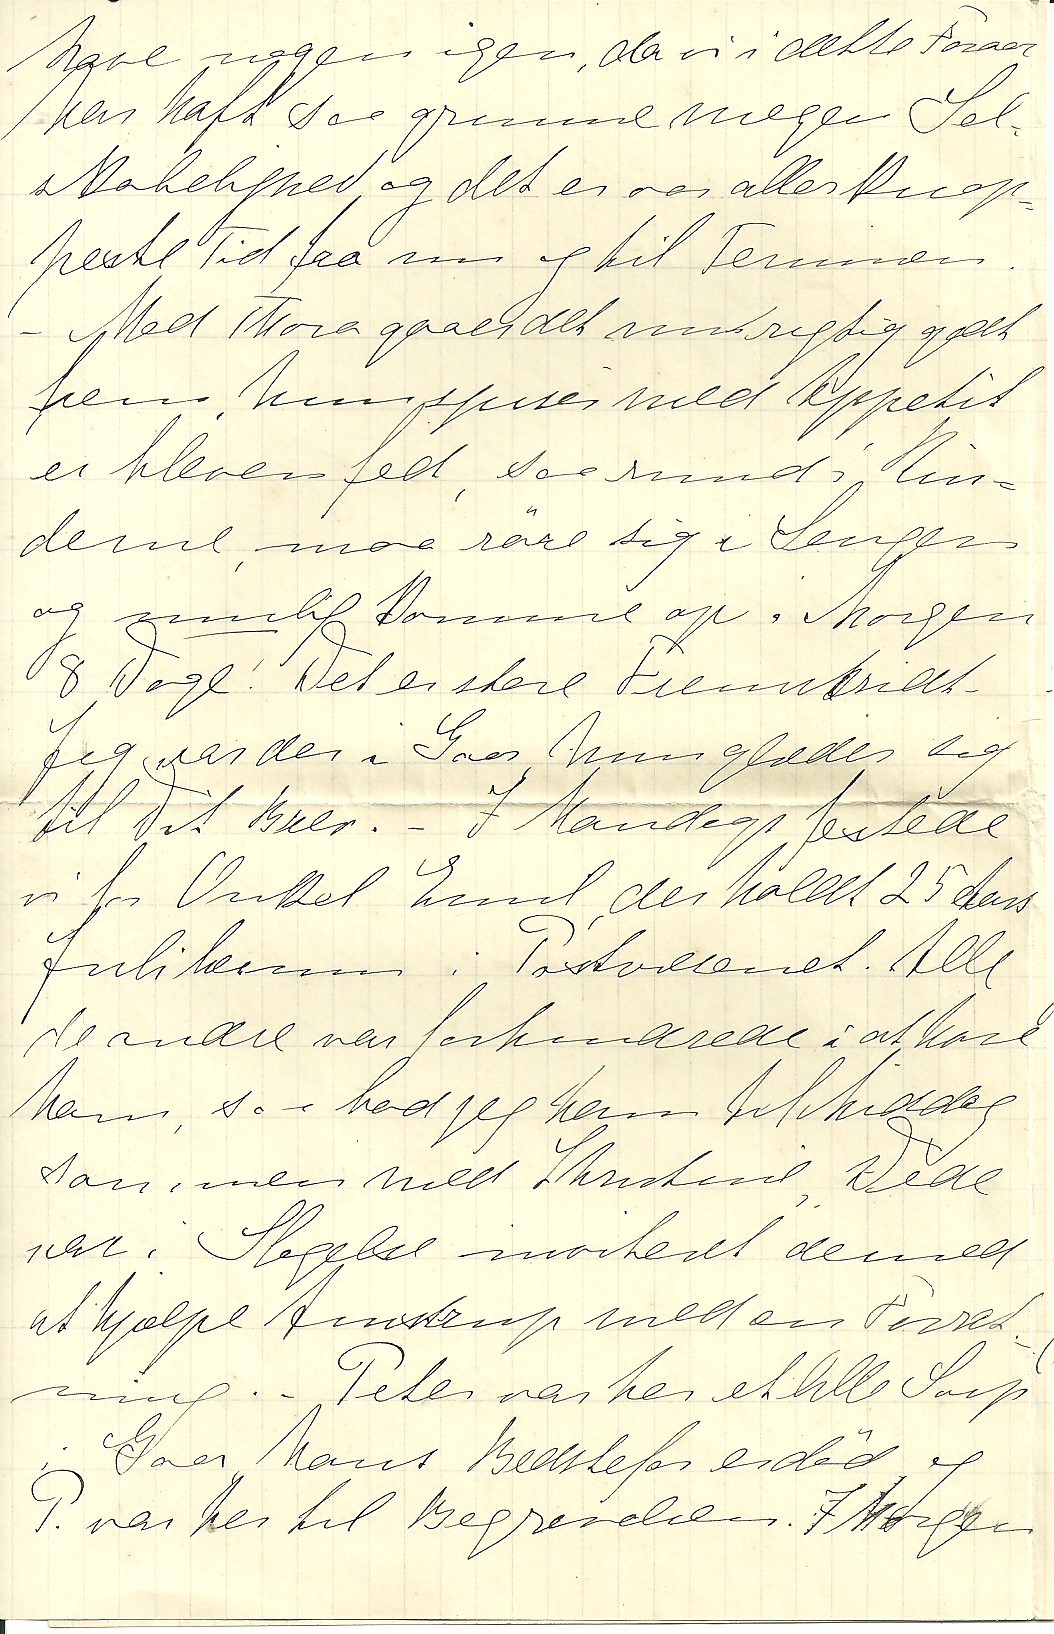 have nogen igen, da vi i dette Foraar
har haft saa grumme megen Sel-
skabelighed, og det er vor allerknap-
peste Tid fra nu og til Terminen.
- Med Thora gaaer det nu rigtig godt
frem, hun spiser med Appetit
er bleven fed, saa rund i Kin-
derne, maa röre sig i Sengen
og mulig komme op i Morgen
8 Dage! Det er store Fremskridt -
Jeg var der i Gaar, hun glæder sig
til Dit Brev. - I Mandags festede
vi for Onkel Emil, der holdt 25 Aars
Jubilæum i Postvæsenet. Alle
de andre var forhindrede i at have
ham, saa bad jeg ham til Middag
sammen med Christine, Dede
var i Slagelse inviteret derned
at hjælpe Amstrup med en Forret-
ning. - Peter var her et lille Svip
i Gaar, hans Bedstefar er död og
P. var her til Begravelsen. I Morgen